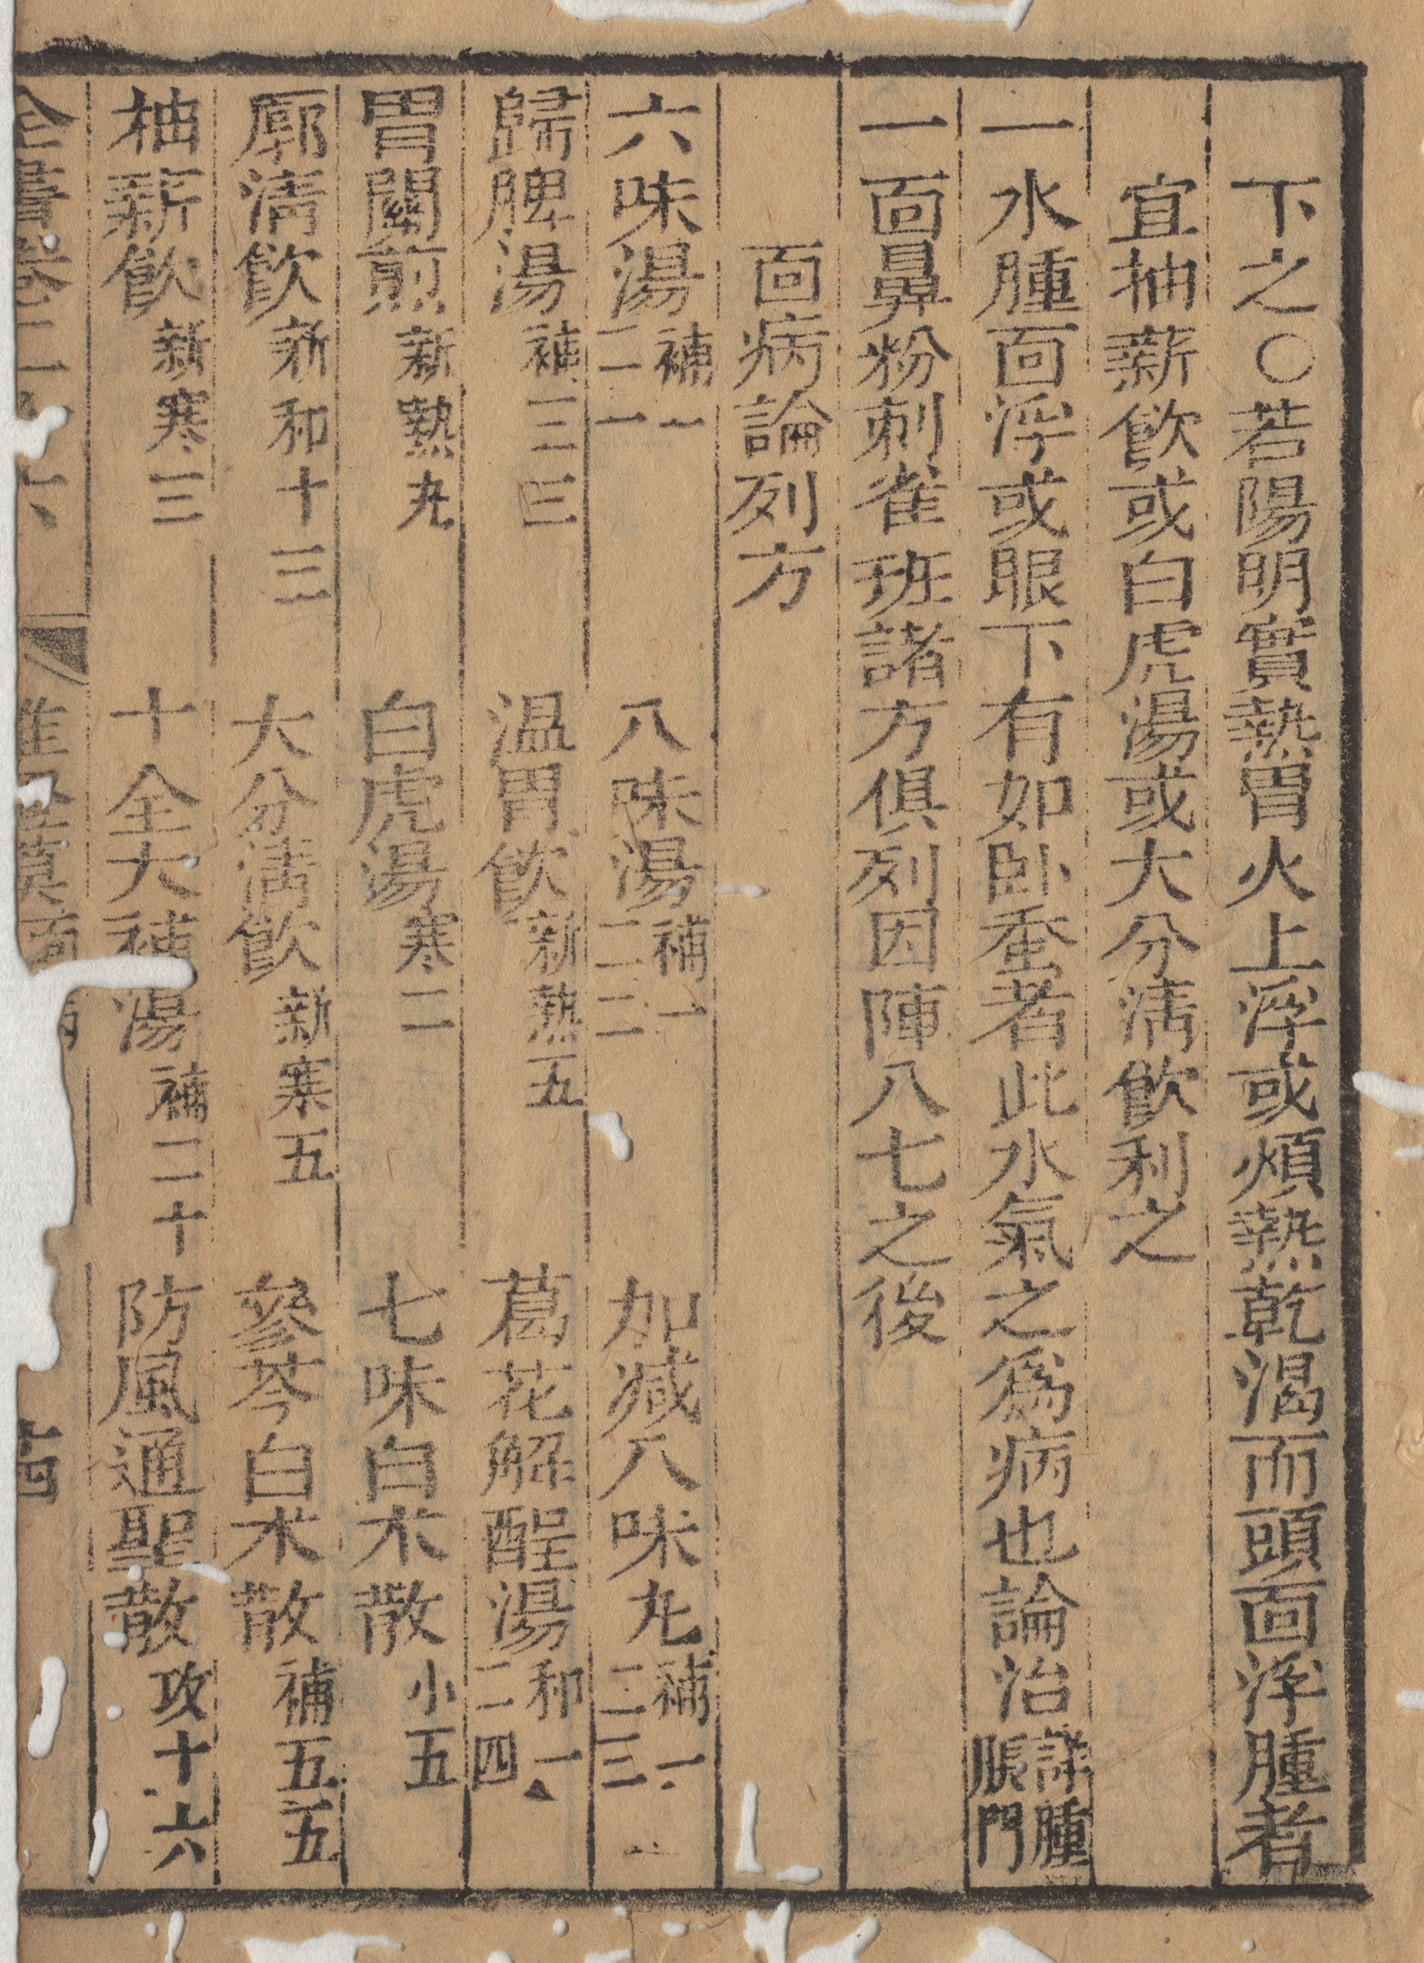 下之○若陽明實熱胃火上浮或煩熱乾渴而頭面浮腫者
宜抽薪飲或白虎湯或大分清飲利之
一水腫面浮或眼下有如卧蚕者此水氣之爲病也論治詳腫脹門
一面鼻粉刺雀班諸方俱列因陣八七之後
面病論列方
六味湯補一二一 八味湯補一二二 加减八味丸補一二三
歸脾湯補三三 温胃飲新熱五 葛花解酲湯和一二四
胃關煎新熱九 白虎湯寒二 七味白朮散小五
廓清飲新和十三 大分清飲新寒五 參苓白朮散補五五
抽薪飲新寒三 十全大補湯補二十 防風通聖散攻十六
全書卷二六 雜 謨 面